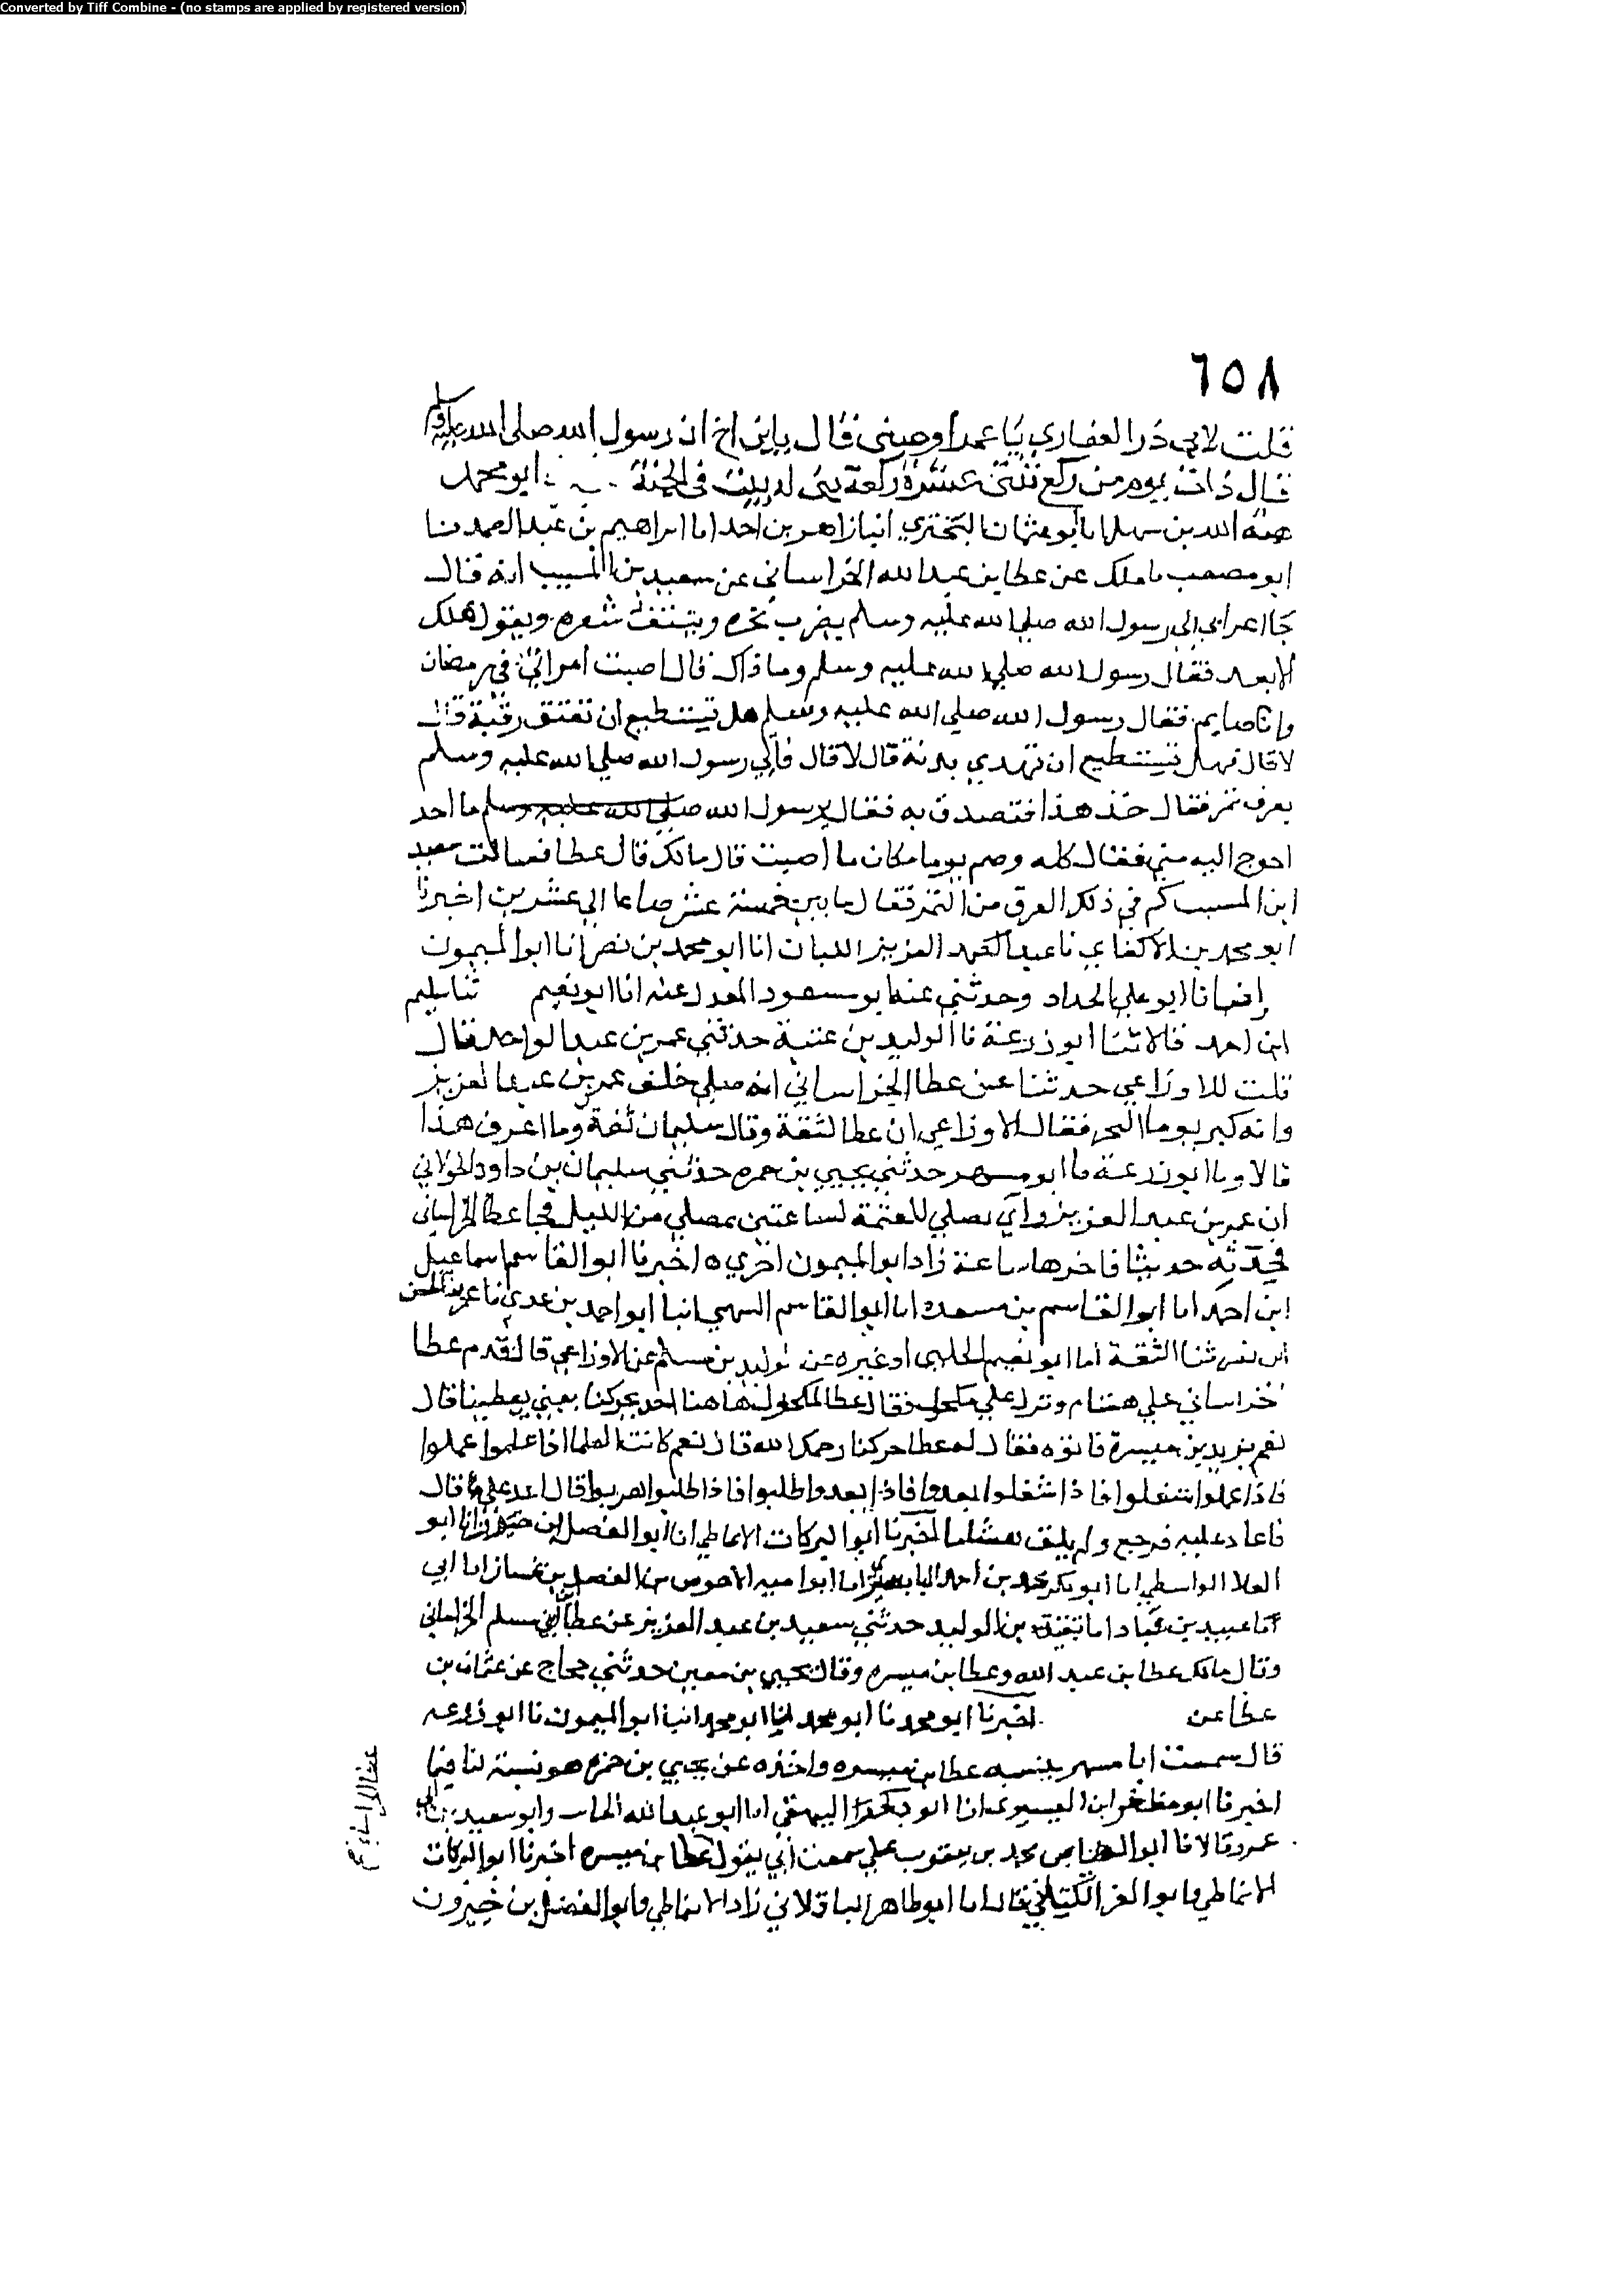 Converted by Tiff Combine - (no stamps are applied by registered version)
٦٥٨
قلت لابي ذر الغفاري يا عمه اوصيني قال يا بن اخ ان رسول الله صلى الله عليه وسلم
قال ذات يوم من ركع ثنتى عشرة ركعة بني له بيت في الجنة ابو محمد
هبة الله بن سهل انا ابو عثمان البختري انبا زاهر بن احد انا ابراهيم بن عبد الصمد نا
ابو مصعب نا ملك عن عطا بن عبد الله الخراساني عن سعيد بن المسيب انه قال
جا اعرابي الى رسول الله صلي الله عليه وسلم يضرب نحره وينتف شعره ويقول هلك
الابعد فقال رسول الله صلي الله عليه وسلم وما ذاك قال اصبت امراتي في رمضان
وانا صايم فقال رسول الله صلي الله عليه وسلم هل تستطيع ان تعتق رقبة قال
لا قال فهل تستطيع ان تهدي بدنة قال لا قال فأتي رسول الله صلي الله عليه وسلم
بعرق تمر فقال خذ هذا فتصدق به فقال يرسول الله صلي الله عليه وسلم ما احد
احوج اليه مني فقال كله وصم يوما مكان ما اصبت قال مالك قال عطا فسالت سعيد
ابن المسيب كم في ذلك العرق من التمر فقال ما بين خمسة عشر صاعا الي عشرين اخبرنا
ابو محمد بن الاكفاني نا عبد العزيز انا ابو محمد بن نصر انا ابو الميمون
انا ابو علي الحداد وحدثني عنه ابو مسعود المعدل عنه انا ابو نعيم ثنا سليم
ابن احمد قالا ثنا ابو زرعة نا الوليد بن عتبة حدثني عمر بن عبد الواحد قال
قلت للاوزاعي حدثنا عن عطا الخراساني انه صلي خلف عمر بن عبد العزيز
وانه كبر يوم النحر فقال الاوزاعي ان عطا لثقة وقال سليمان ثقة وما اعرف هذا
قالا ونا ابو زرعة نا ابو مسهر حدثني يحيي بن حمزه حدثني سليمان بن داود الخولاني
ان عمر بن عبد العزيز راي يصلي للعتمة لساعتين من الليل فجا عطا الخراساني
فحدثه حديثا فاخرها ساعة زاد ابو الميمون اخري ه اخبرنا ابو القاسم اسماعيل
ابن احمد انا ابو القاسم بن مسعدة انا ابو القاسم السهمي انبا ابو احمد بن عدي نا عمر بن الحسن
ابن نصر ثنا الثقة انا ابو نعيم الحلبي او غيره عن الوليد بن مسلم عن الاوزاعي قال قدم عطا
الخراساني علي هشام ونزل علي مكحول فقال عطا لمكحول هاهنا احد يحركنا يعني يعظنا قال
نعم يزيد بن ميسرة فاتوه فقال له عطا حركنا رحمك الله قال نعم كانت العلما اذا علموا عملوا
فاذا عملوا شغلوا فاذا شغلوا فقدوا فاذا فقدوا طلبوا فاذا طلبوا هربوا قال اعد علي قال
فاعاد عليه فرجع ولم يلق هشاما اخبرنا ابو البركات الانماطي انا ابو الفضل بن خيرون انا ابو
العلا الواسطي انا ابو بكر محمد بن احمد البابسيري انا ابو اميه الاحوص بن الفضل بن غسان انا ابي
عبيد بن عباد انا بقية بن الوليد حدثني سعيد بن عبد العزيز عن عطا بن مسلم الخراساني
وقال مالك عطا بن عبد الله وعطا بن ميسره وقال يحيي بن معين حدثني حجاج عن عثمان بن
عطا عن اخبرنا ابو محمد نا ابو محمد انا ابو محمد انبا ابو الميمون نا ابو زرعه
قال سمعت ابا مسهر ينسبه عطا بن ميسره واخذه عن يحيي بن حمزه هو نسبة لنا
اخبرنا ابو مظفر ابن القشيري انا ابو بكر البيهقي انا ابو عبد الله الحاف وابو سعيد بن ابي
عمرو قالا نا ابو العباس محمد بن يعقوب سمعت ابي يقول عطا بن ميسره اخبرنا ابو البركات
الانماطي وابو العز الكيلي قالا انا ابو طاهر الباقلاني زاد الانماطي وابو الفضل بن خيرون